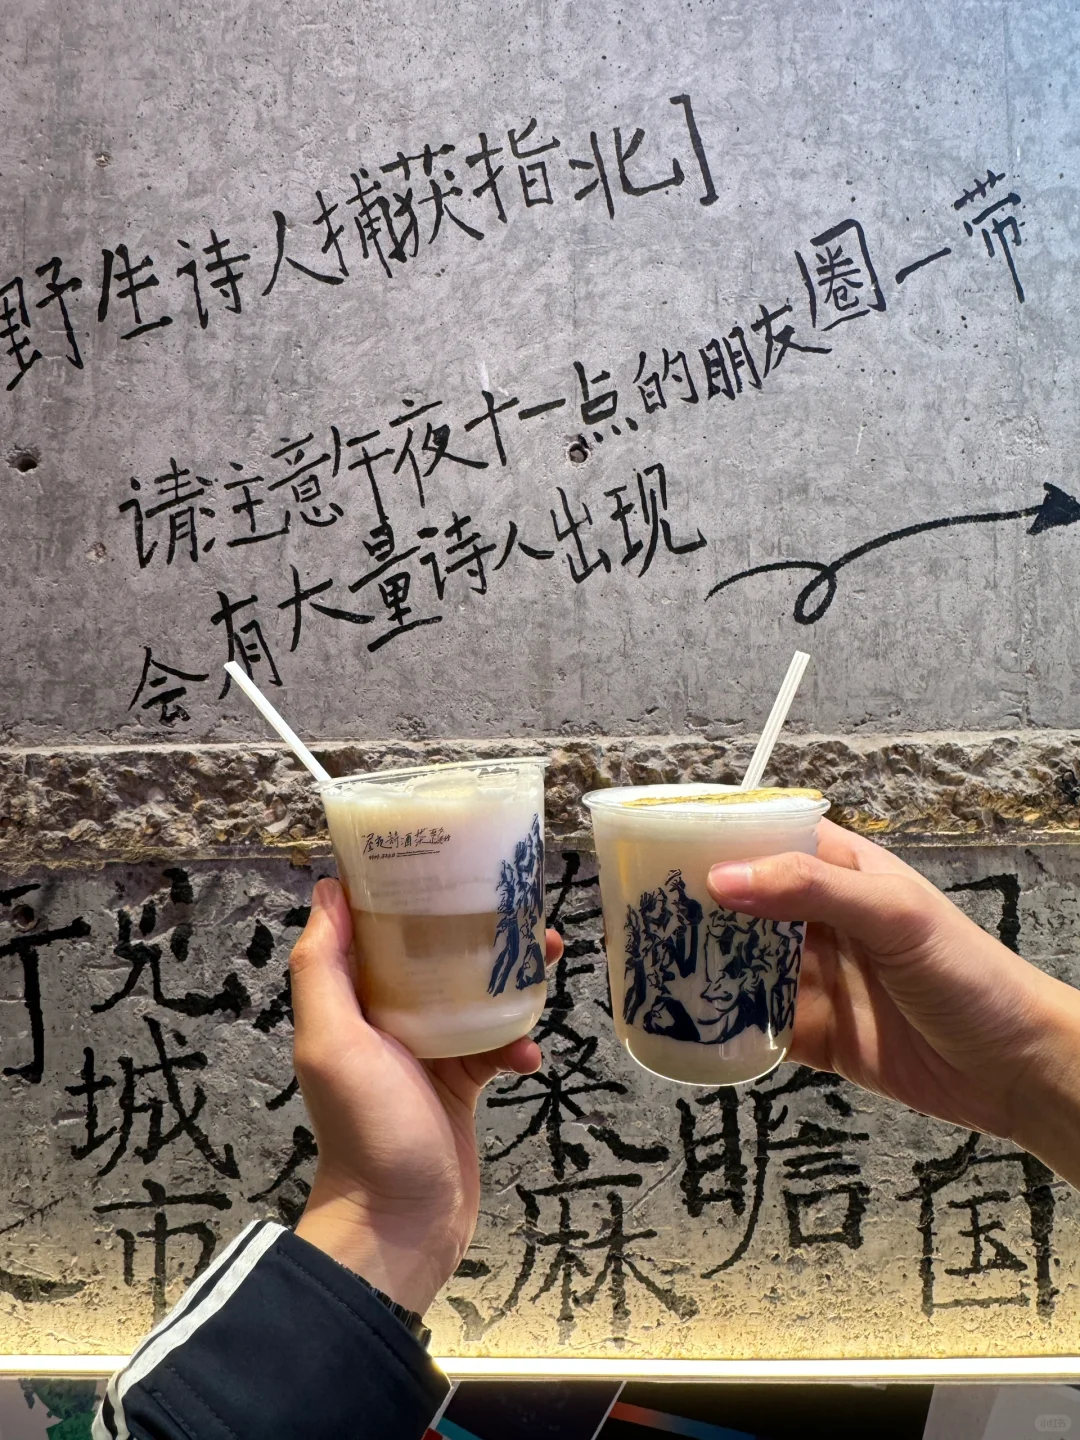 野生诗人捕获指北]
请注意午夜十一点的朋友圈一带
会有大量诗人出现
诗酒茶
城市
桑麻
瞻
国
小红书